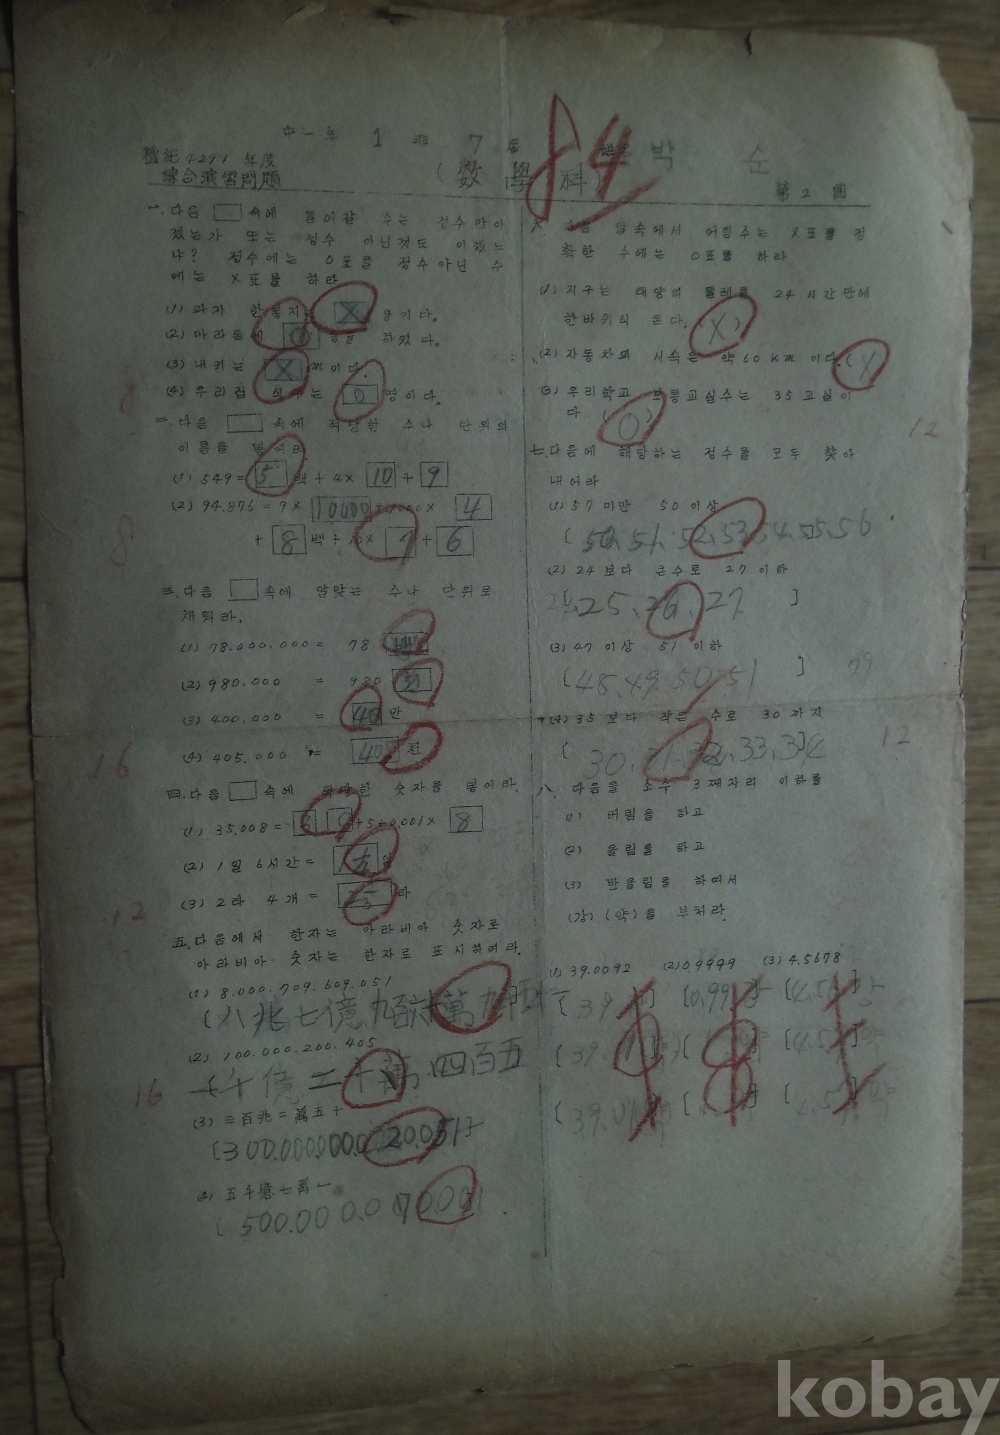 中一年 1 班 7 番
檀紀4291年度
綜合演習問題
(数學科)
84
박 순
第2回
一.다음 □ 속에 들어갈 수는 정수만이
겠는가 또는 정수 아닌것도 이겠느
냐? 정수에는 O표를 정수아닌 수
에는 X표를 하라
(1) 과자 한봉지는 X
(2) 마라톤에 O 등을 하였다.
(3) 내키는 X m이다.
(4) 우리집 식구는 O 명이다.
8
二.다음 □ 속에 적당한 수나 단위의
이름을 넣어라
(1) 549= 5 백 + 4× 10 + 9
(2) 94.876 = 9× 10000 + 1000× 4
+ 8 백 + 10× 7 + 6
8
三.다음 □ 속에 알맞는 수나 단위로
채워라.
(1) 78.000.000 = 78
(2) 980.000 = 980 천
(3) 400,000 = 40 만
(4) 405,000 = 405 천
16
四.다음 □ 속에 적당한 숫자를 넣어라.
(1) 35,008 = +5+0,001× 8
(2) 1일 6시간 = 일
(3) 2타 4개 = 타
12
五.다음에서 한자는 아라비아 숫자로
아라비아 숫자는 한자로 표시하여라.
(1) 8.000.709.609.051
(八兆七億九百六十萬九千五十一
(2) 100.000.200.405
千億二十萬.四百五
16
(3) 三百兆二萬五十
(4) 五千億七萬一
六. 다음 말속에서 어림수는 X표를 정
확한 수에는 O표를 하라
(1) 지구는 태양의 둘레를 24시간만에
한바퀴식 돈다.(X)
(2) 자동차의 시속은 약60km이다.(X)
(3) 우리학교 보통교실수는 35교실이
다 (O)
12
七.다음에 해당하는 정수를 모두 찾아
내어라
(1) 57 미만 50 이상
( 50.51.52.53.54.55.56
(2) 24보다 큰수로 27 이하
[ 25.26.27 ]
(3) 47 이상 51 이하
(48.49.50.51 ]
(4) 35보다 작은 수로 30까지
( 30.31.32.33.34
12
八. 다음을 소수 3째자리 이하를
(1) 버림을 하고
(2) 올림을 하고
(3) 반올림을 하여서
(강)(약)을 부처라.
(1) 39.0092 (2) 0,9999 (3) 4.5678
kobay